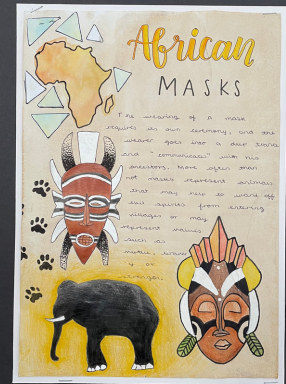 African
MASKS
The wearing of a mask
requires its own ceremony, and the
wearer goes into a deep trance
and "communicates" with his
ancestors. More often than
not masks represent animals
that may help to ward off
evil spirits from entering
villages or may
represent values
such as